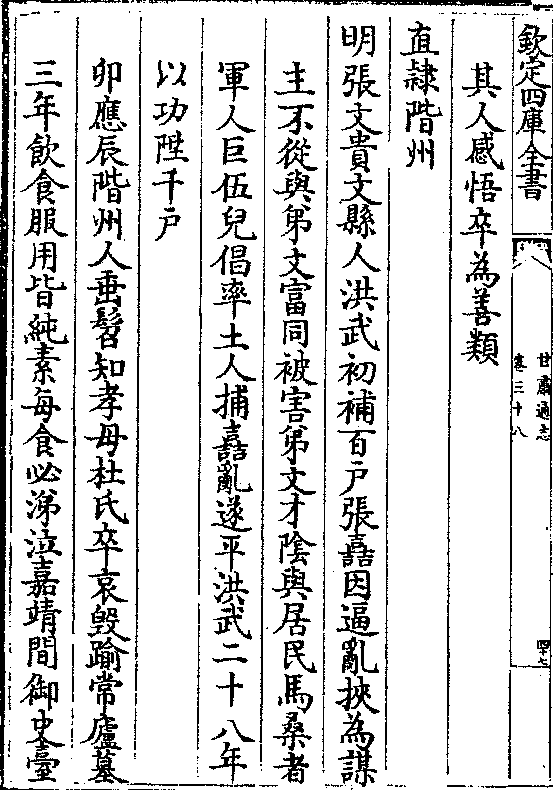 欽定四庫全書
甘肅通志
卷三十八
四十七
其人感悟卒為善類
直隸階州
明張文貴文縣人洪武初補百戶張嚞因逼亂挾為謀
主不從與弟文富同被害弟文才陰與居民馬桑者
軍人巨伍兒倡率土人捕嚞亂遂平洪武二十八年
以功陞千戶
卯應辰階州人垂髫知孝母杜氏卒哀毀踰常廬墓
三年飲食服用皆純素每食必涕泣嘉靖間御史臺